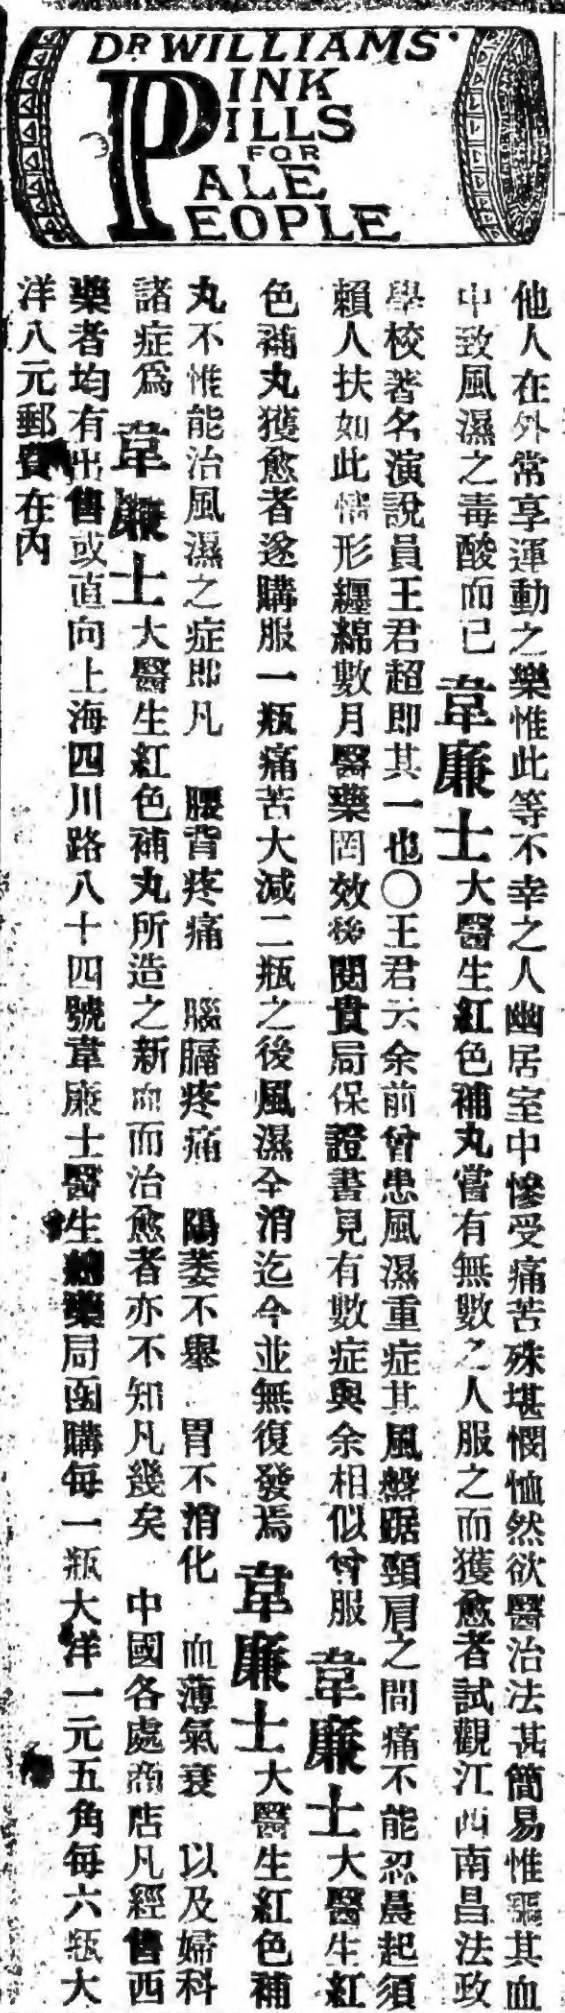 DR WILLIAMS'
PINK
PILLS
FOR
PALE
PEOPLE
他人在外常享運動之樂惟此等不幸之人幽居室中慘受痛苦殊堪憫恤然欲醫治法甚簡易惟驅其血
中致風濕之毒酸而已韋廉士大醫生紅色補丸嘗有無數之人服之而獲愈者試觀江西南昌法政
學校著名演說員王君超即其一也〇王君云余前曾患風濕重症其風盤踞頸肩之間痛不能忍晨起須
賴人扶如此情形纏綿數月醫藥罔效後閱貴局保證書見有數症與余相似曾服韋廉士大醫生紅
色補丸獲愈者遂購服一瓶痛苦大減二瓶之後風濕全消迄今並無復發焉韋廉士大醫生紅色補
丸不惟能治風濕之症即凡 腰背疼痛 腦膈疼痛 陽萎不舉 胃不消化 血薄氣衰 以及婦科
諸症為韋廉士大醫生紅色補丸所造之新血而治愈者亦不知凡幾矣 中國各處商店凡經售西
藥者均有出售或直向上海四川路八十四號韋廉士醫生總藥局函購每一瓶大洋一元五角每六瓶大
洋八元郵費在內